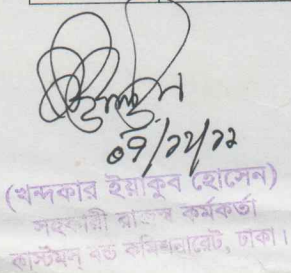 ০৭/১২/১১
(খন্দকার ইয়াকুব হোসেন)
সহকারী রাজস্ব কর্মকর্তা
কাস্টমস্ বন্ড কমিশনারেট, ঢাকা।